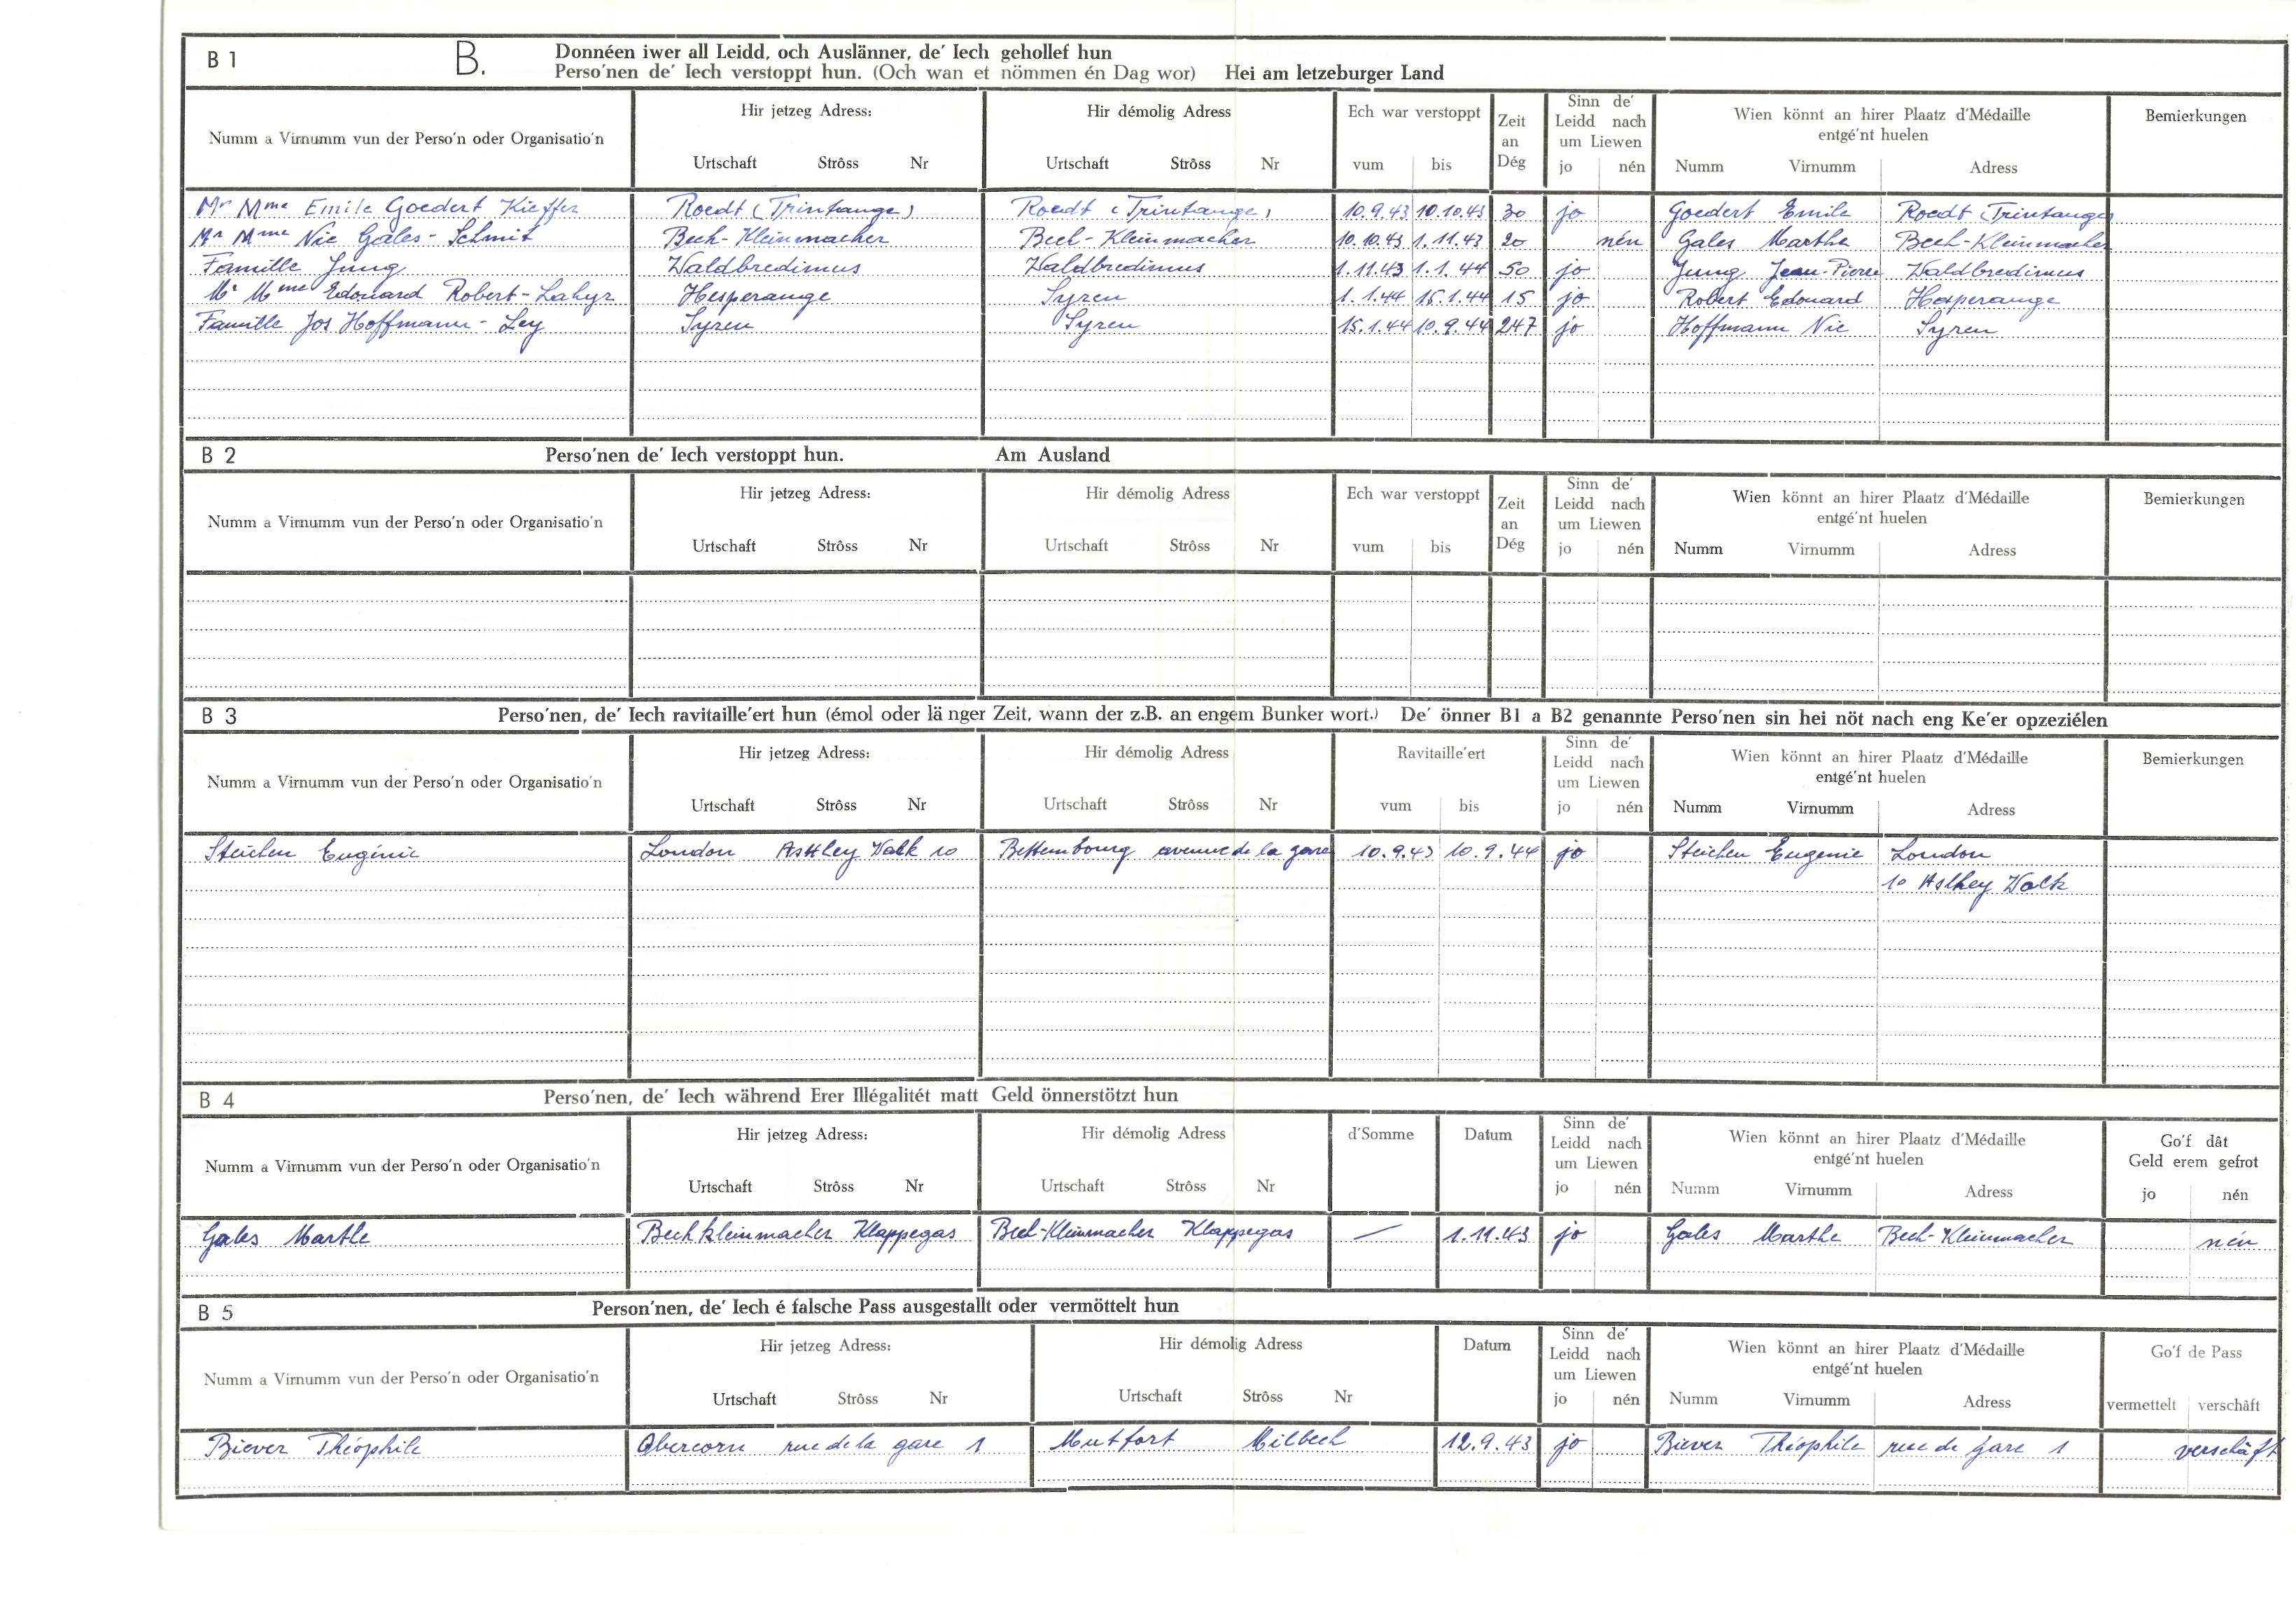 B 1 B. Donnéen iwer all Leidd, och Auslänner, de' Iech gehollef hun
Perso'nen de' Iech verstoppt hun. (Och wan et nömmen én Dag wor) Hei am letzeburger Land
Numm a Virnumm vun der Perso'n oder Organisatio'n
Hir jetzeg Adress: Hir démolig Adress Ech war verstoppt Zeit an Dég Sinn de' Leidd nach um Liewen Wien könnt an hirer Plaatz d'Médaille entgé'nt huelen Bemierkungen
Urtschaft Strôss Nr Urtschaft Strôss Nr vum bis jo nén Numm Virnumm Adress
Mr Mme Emile Goedert Kieffer Roedt (Trintange) Roedt (Trintange) 10.9.43 10.10.43 30 jo Goedert Emile Roedt (Trintange
Mr Mme Nic Gales-Schmit Bech-Kleinmacher Bech-Kleinmacher 10.10.43 1.11.43 20 nén Gales Marthe Bech-Kleinmacher
Famille Jung Waldbredimus Waldbredimus 1.11.43 1.1.44 50 jo Jung Jean-Pierre Waldbredimus
Mr Mme Edouard Robert-Lahyr Hesperange Syren 1.1.44 15.1.44 15 jo Robert Edouard Hesperange
Famille Jos Hoffmann-Ley Syren Syren 15.1.44 10.9.44 247 jo Hoffmann Nic Syren
B 2 Perso'nen de' Iech verstoppt hun. Am Ausland
Numm a Virnumm vun der Perso'n oder Organisatio'n
Hir jetzeg Adress: Hir démolig Adress Ech war verstoppt Zeit an Dég Sinn de' Leidd nach um Liewen Wien könnt an hirer Plaatz d'Médaille entgé'nt huelen Bemierkungen
Urtschaft Strôss Nr Urtschaft Strôss Nr vum bis jo nén Numm Virnumm Adress
B 3 Perso'nen, de' Iech ravitaille'ert hun (émol oder lä nger Zeit, wann der z.B. an engem Bunker wort.) De' önner B1 a B2 genannte Perso'nen sin hei nöt nach eng Ke'er opzeziélen
Numm a Virnumm vun der Perso'n oder Organisatio'n
Hir jetzeg Adress: Hir démolig Adress Ravitaille'ert Sinn de' Leidd nach um Liewen Wien könnt an hirer Plaatz d'Médaille entgé'nt huelen Bemierkungen
Urtschaft Strôss Nr Urtschaft Strôss Nr vum bis jo nén Numm Virnumm Adress
Steichen Eugénie London Asthey Walk 10 Bettembourg avenue de la gare 10.9.43 10.9.44 jo Steichen Eugenie London
10 Asthey Walk
B 4 Perso'nen, de' Iech während Erer Illégalitét matt Geld önnerstötzt hun
Numm a Virnumm vun der Perso'n oder Organisatio'n
Hir jetzeg Adress: Hir démolig Adress d'Somme Datum Sinn de' Leidd nach um Liewen Wien könnt an hirer Plaatz d'Médaille entgé'nt huelen Go'f dât Geld erem gefrot
Urtschaft Strôss Nr Urtschaft Strôss Nr jo nén Numm Virnumm Adress jo nén
Gales Marthe Bechkleinmacher Klappegas Bech-Kleinmacher Klappegas — 1.11.43 jo Gales Marthe Bech-Kleinmacher nén
B 5 Person'nen, de' Iech é falsche Pass ausgestallt oder vermöttelt hun
Numm a Virnumm vun der Perso'n oder Organisatio'n
Hir jetzeg Adress: Hir démolig Adress Datum Sinn de' Leidd nach um Liewen Wien könnt an hirer Plaatz d'Médaille entgé'nt huelen Go'f de Pass
Urtschaft Strôss Nr Urtschaft Strôss Nr jo nén Numm Virnumm Adress vermettelt verschâft
Biever Théophile Obercorn rue de la gare 1 Mutfort Milbech 12.9.43 jo Biever Théophile rue de Gare 1 verschâft